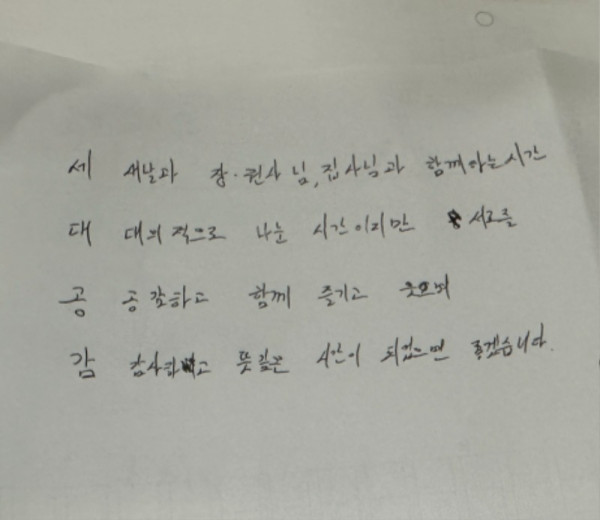 세 새날과 장·권사님, 집사님과 함께하는 시간
대 대외적으로 나눈 시간이지만 서로를
공 공감하고 함께 즐기고 웃으며
감 감사하고 뜻깊은 시간이 되었으면 좋겠습니다.